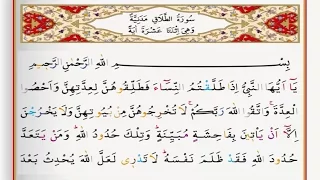 سُورَةُ الطَّلَاقِ مَدَنِيَّةٌ
وَهِيَ اثْنَتَا عَشْرَةَ آيَةً
بِسْمِ اللهِ الرَّحْمٰنِ الرَّحِيمِ
يَٓا اَيُّهَا النَّبِيُّ اِذَا طَلَّقْتُمُ النِّسَٓاءَ فَطَلِّقُوهُنَّ لِعِدَّتِهِنَّ وَاَحْصُوا
الْعِدَّةَۚ وَاتَّقُوا اللهَ رَبَّكُمْۚ لَا تُخْرِجُوهُنَّ مِنْ بُيُوتِهِنَّ وَلَا يَخْرُجْنَ
اِلَّٓا اَنْ يَأْت۪ينَ بِفَاحِشَةٍ مُبَيِّنَةٍۜ وَتِلْكَ حُدُودُ اللهِۜ وَمَنْ يَتَعَدَّ
حُدُودَ اللهِ فَقَدْ ظَلَمَ نَفْسَهُۜ لَا تَدْر۪ي لَعَلَّ اللهَ يُحْدِثُ بَعْدَ